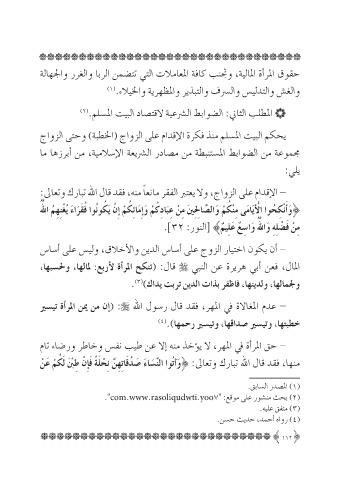 حقوق المرأة المالية، وتجنب كافة المعاملات التي تتضمن الربا والغرر والجهالة
والغش والتدليس والسرف والتبذير والمظهرية والخيلاء.(١)
المطلب الثاني: الضوابط الشرعية لاقتصاد البيت المسلم.(٢)
يحكم البيت المسلم منذ فكرة الإقدام على الزواج (الخطبة) وحتى الزواج
مجموعة من الضوابط المستنبطة من مصادر الشريعة الإسلامية، من أبرزها ما
يلي:
– الإقدام على الزواج، ولا يعتبر الفقر مانعاً منه، فقد قال الله تبارك وتعالى:
﴿وَأَنكِحُوا الْأَيَامَى مِنكُمْ وَالصَّالِحِينَ مِنْ عِبَادِكُمْ وَإِمَائِكُمْ إِن يَكُونُوا فُقَرَاءَ يُغْنِهِمُ اللَّهُ
مِن فَضْلِهِ وَاللَّهُ وَاسِعٌ عَلِيمٌ﴾ [النور: ٣٢].
– أن يكون اختيار الزوج على أساس الدين والأخلاق، وليس على أساس
المال، فعن أبي هريرة عن النبي ﷺ قال: (تنكح المرأة لأربع: لمالها، ولحسبها،
ولجمالها، ولدينها، فاظفر بذات الدين تربت يداك)(٣).
– عدم المغالاة في المهر، فقد قال رسول الله ﷺ: (إن من يمن المرأة تيسير
خطبتها، وتيسير صداقها، وتيسير رحمها).(٤)
– حق المرأة في المهر، لا يؤخذ منه إلا عن طيب نفس وخاطر ورضاء تام
منها، فقد قال الله تبارك وتعالى: ﴿وَآتُوا النِّسَاءَ صَدُقَاتِهِنَّ نِحْلَةً فَإِن طِبْنَ لَكُمْ عَن
(١) المصدر السابق.
(٢) بحث منشور على موقع: "com.www.rasoliqudwti.yoo٧".
(٣) متفق عليه.
(٤) رواه أحمد، حديث حسن.
﴿ ١١٢ ﴾